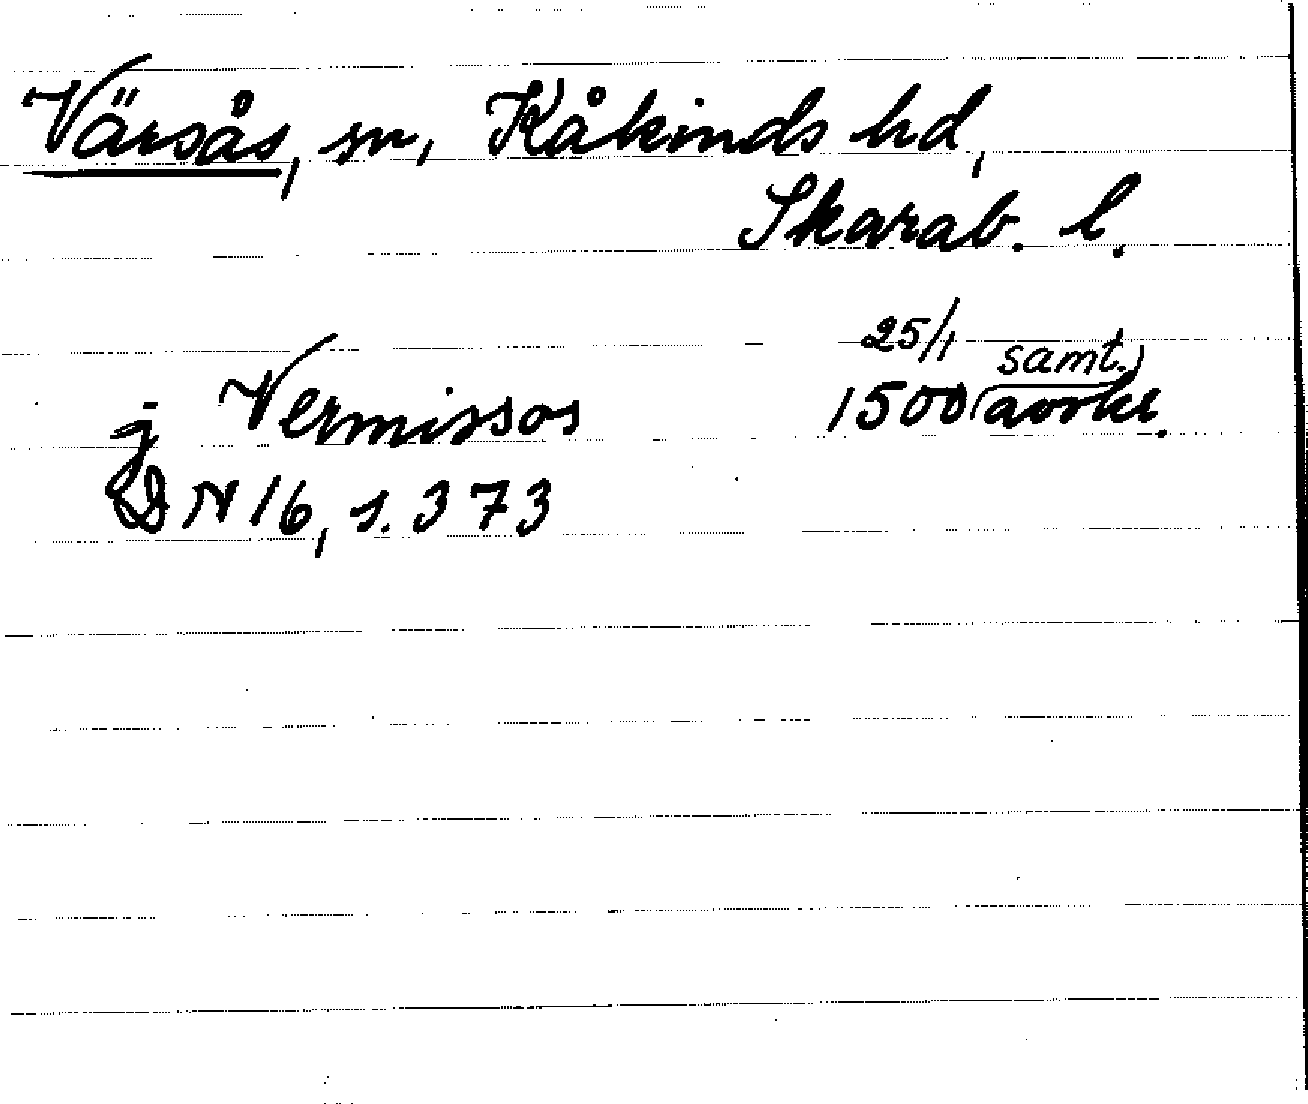 Värsås, sn, Kåkinds hd,
Skarab. l.
j Vermissos 25/1 1500 (samt. avskr.)
DN 16, s. 373